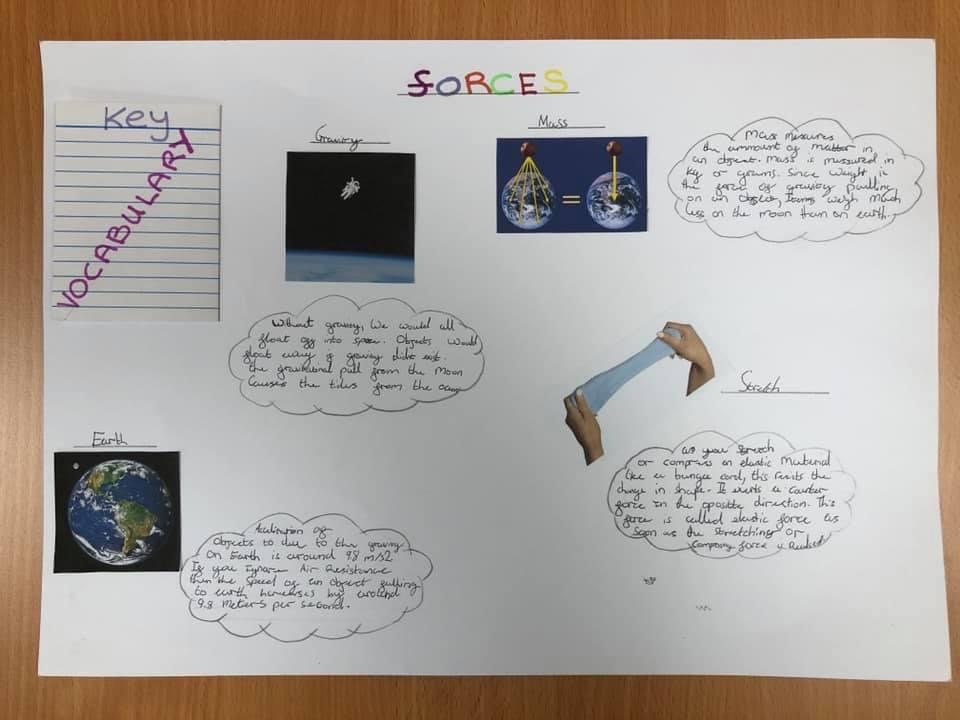 FORCES
Key
VOCABULARY
Gravity
Mass
Mass measures
the ammount of matter in
an object. Mass is measured in
kg or grams. Since weight is
the force of gravity pulling
on an object, Items weigh much
less on the moon than on earth.
=
Without gravity, We would all
float off into space. Objects would
float away if gravity didnt exist.
the gravitional pull from the Moon
Causes the tides from the ocean
Stretch
as you stretch
or compress an elastic Material
like a bungee cord, this resists the
change in shape. It exerts a counter
force in the opposite direction. This
force is called elastic force as
soon as the stretching or
force is
Earth
of
Objects to due to the gravity
On Earth is around 9.8 m/s2
If you Ignore Air Resistance
then the speed of an object falling
to earth increases by around
9.8 Meters per second.